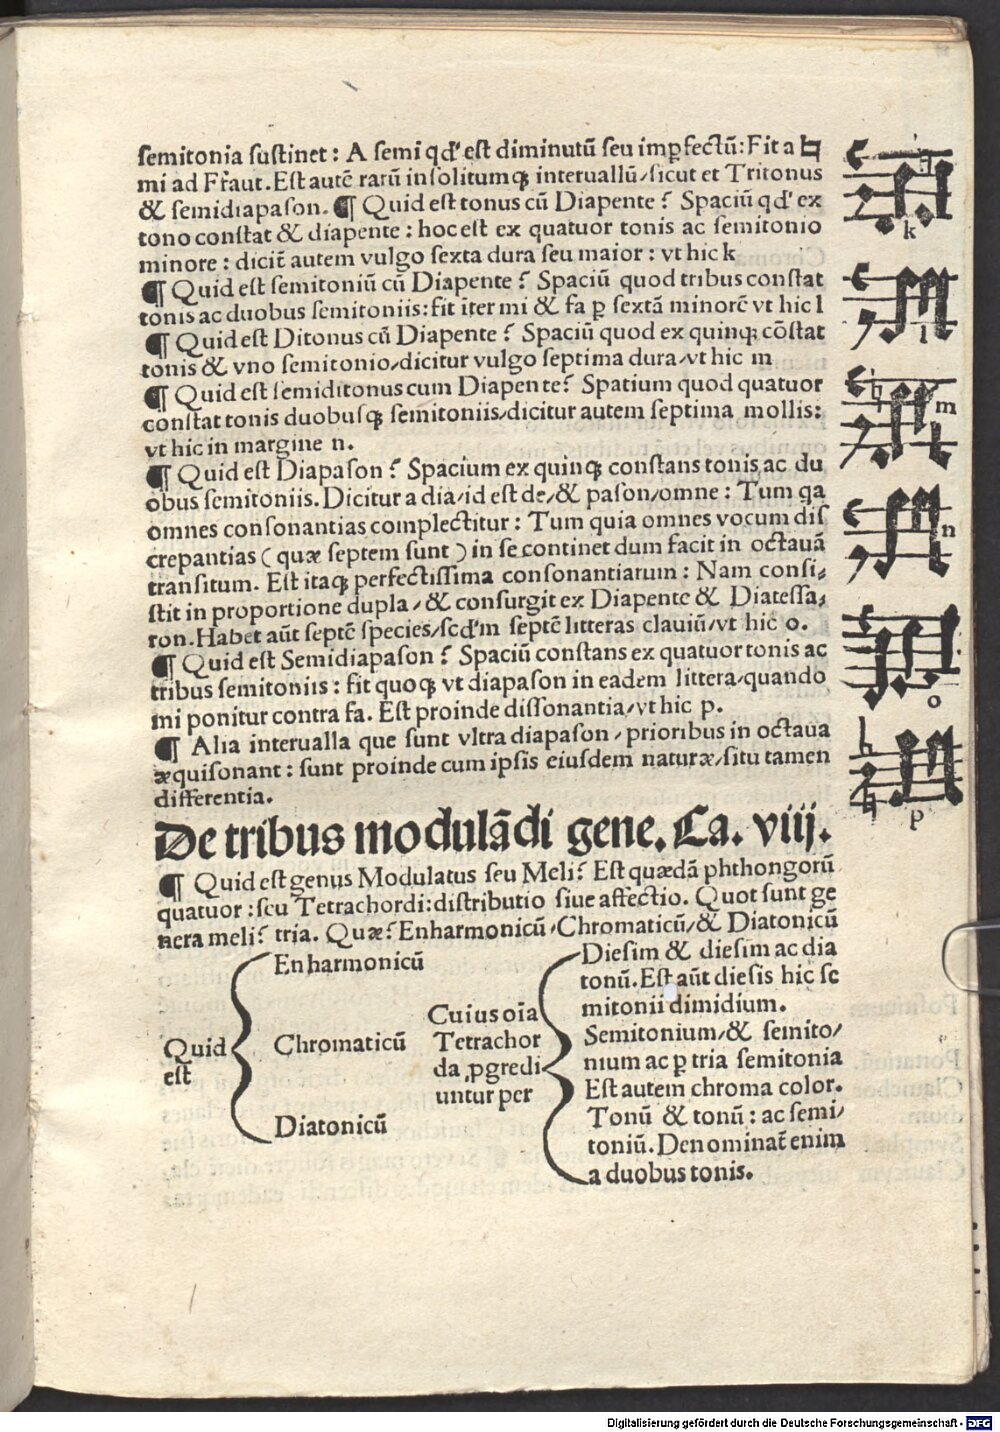 semitonia sustinet: A semi qd' est diminutū seu imꝑfectū: Fit a ♮
mi ad F faut. Est autē rarū insolitumqꝫ interuallū/sicut et Tritonus
& semidiapason. ¶ Quid est tonus cū Diapente? Spaciū qd' ex
tono constat & diapente: hoc est ex quatuor tonis ac semitonio
minore: dicit̄ autem vulgo sexta dura seu maior: vt hic k
¶ Quid est semitoniū cū Diapente? Spaciū quod tribus constat
tonis ac duobus semitoniis: fit īter mi & fa ꝑ sextā minorē vt hic l
¶ Quid est Ditonus cū Diapente? Spaciū quod ex quinqꝫ cōstat
tonis & vno semitonio/dicitur vulgo septima dura/vt hic m
¶ Quid est semiditonus cum Diapente? Spatium quod quatuor
constat tonis duobusqꝫ semitoniis/dicitur autem septima mollis:
vt hic in margine n.
¶ Quid est Diapason? Spacium ex quinqꝫ constans tonis ac du
obus semitoniis. Dicitur a dia/id est de/& pason/omne: Tum qa
omnes consonantias complectitur: Tum quia omnes vocum dis
crepantias (quæ septem sunt) in se continet dum facit in octauā
transitum. Est itaqꝫ perfectissima consonantiarum: Nam consi⸗
stit in proportione dupla/& consurgit ex Diapente & Diatessa⸗
ron. Habet aūt septē species/scd'm septē litteras clauiū/vt hic o.
¶ Quid est Semidiapason? Spaciū constans ex quatuor tonis ac
tribus semitoniis: fit quoqꝫ vt diapason in eadem littera/quando
mi ponitur contra fa. Est proinde dissonantia/vt hic p.
¶ Alia interualla que sunt vltra diapason/prioribus in octaua
æquisonant: sunt proinde cum ipsis eiusdem naturæ/situ tamen
differentia.
k
l
m
n
o
p
De tribus modulādi gene. Ca. viij.
¶ Quid est genus Modulatus seu Meli? Est quædā phthongorū
quatuor: seu Tetrachordi: distributio siue affectio. Quot sunt ge
nera meli? tria. Quæ? Enharmonicū/Chromaticū/& Diatonicū
Quid
est
Enharmonicū
Chromaticū
Diatonicū
Cuius oīa
Tetrachor
da ꝓgredi
untur per
Diesim & diesim ac dia
tonū. Est aūt diesis hic se
mitonii dimidium.
Semitonium/& semito/
nium ac ꝑ tria semitonia
Est autem chroma color.
Tonū & tonū: ac semi/
toniū. Denominat̄ enim
a duobus tonis.
Digitalisierung gefördert durch die Deutsche Forschungsgemeinschaft - DFG